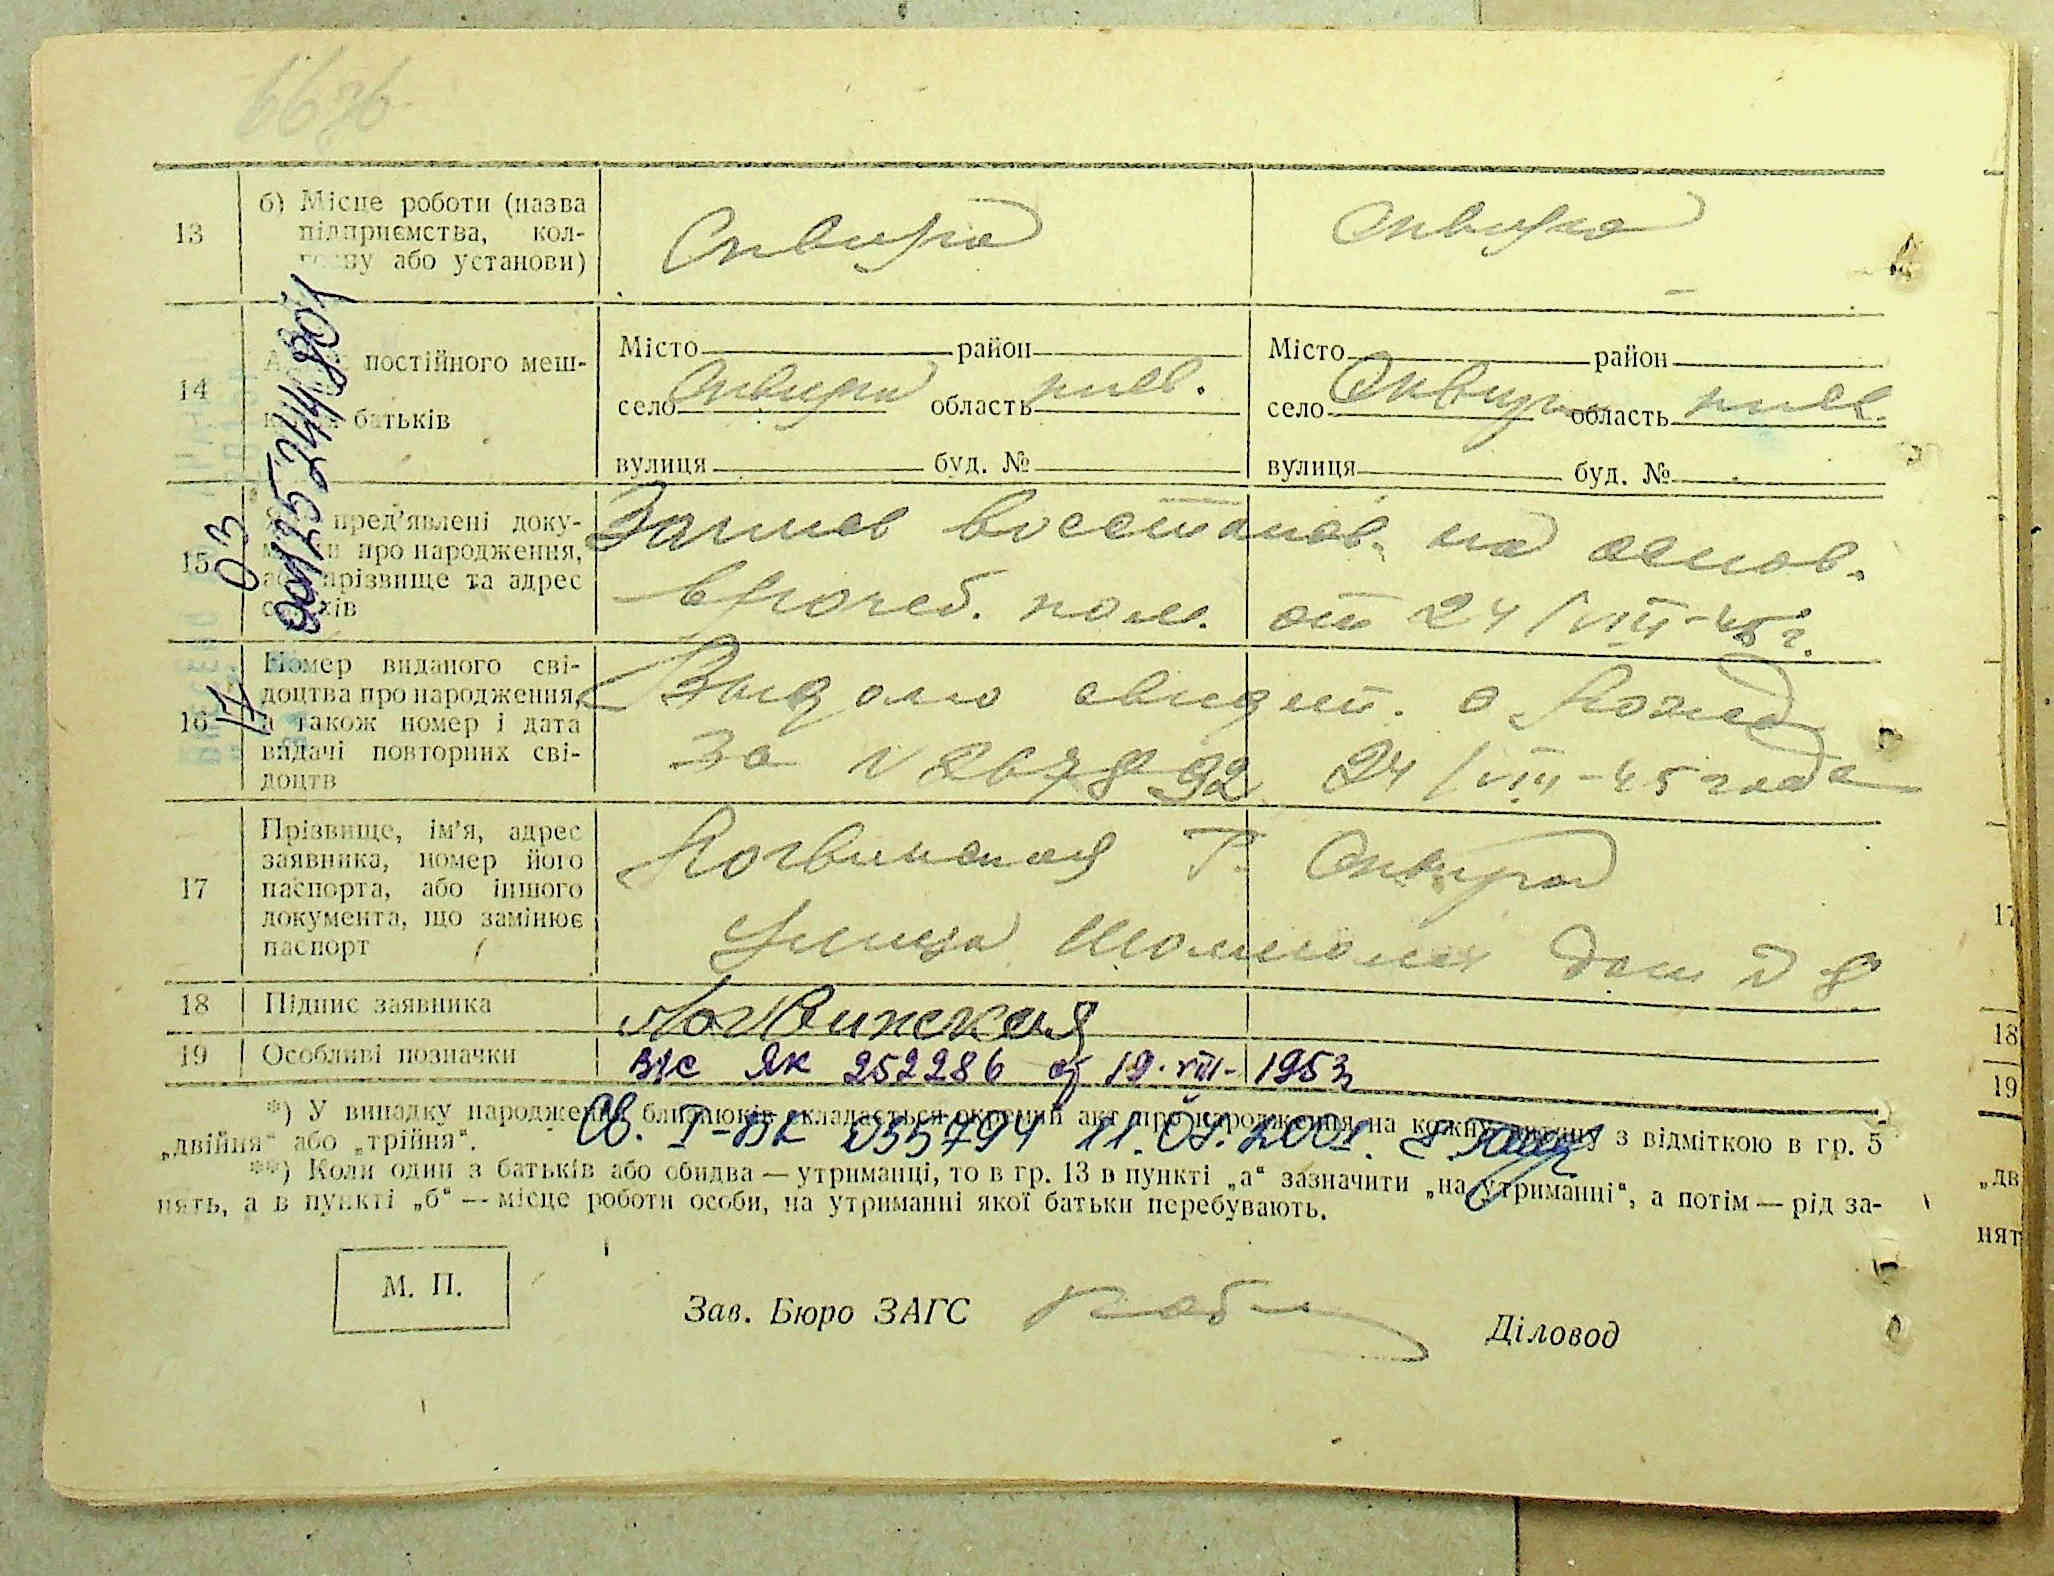 13
б) Місце роботи (назва
підприємства, кол-
госпу або установи)
Сквира
Сквира
14
постійного меш-
батьків
Місто район
село Сквира область киев.
вулиця буд. №
Місто район
село Сквира область киев.
вулиця буд. №
15
пред'явлені доку-
про народження,
прізвище та адрес
Запись восстанов. на основ.
врачеб. ком. от 24/VIII-45 г.
16
Номер виданого сві-
доцтва про народження,
а також номер і дата
видачі повторних сві-
доцтв
Выдано свидет. о рожд
за № 267892 24/VIII-45 года
17
Прізвище, ім'я, адрес
заявника, номер його
паспорта, або іншого
документа, що замінює
паспорт
Логвинская Т. Сквира
улица дом № 8
18
Підпис заявника
Логвинская
19
Особливі позначки
ЯК 252286 от 19.VIII-1953
*) У випадку народження близнюків складається окремий акт про народження на кожну дитину з відміткою в гр. 5
„двійня“ або „трійня“.
Св. I-БК 035794 11.04.2001.
**) Коли один з батьків або обидва — утриманці, то в гр. 13 в пункті „а“ зазначити „на утриманні“, а потім — рід за-
нять, а в пункті „б“ — місце роботи особи, на утриманні якої батьки перебувають.
М. П.
Зав. Бюро ЗАГС
Діловод
17
18
19
„дв
нят